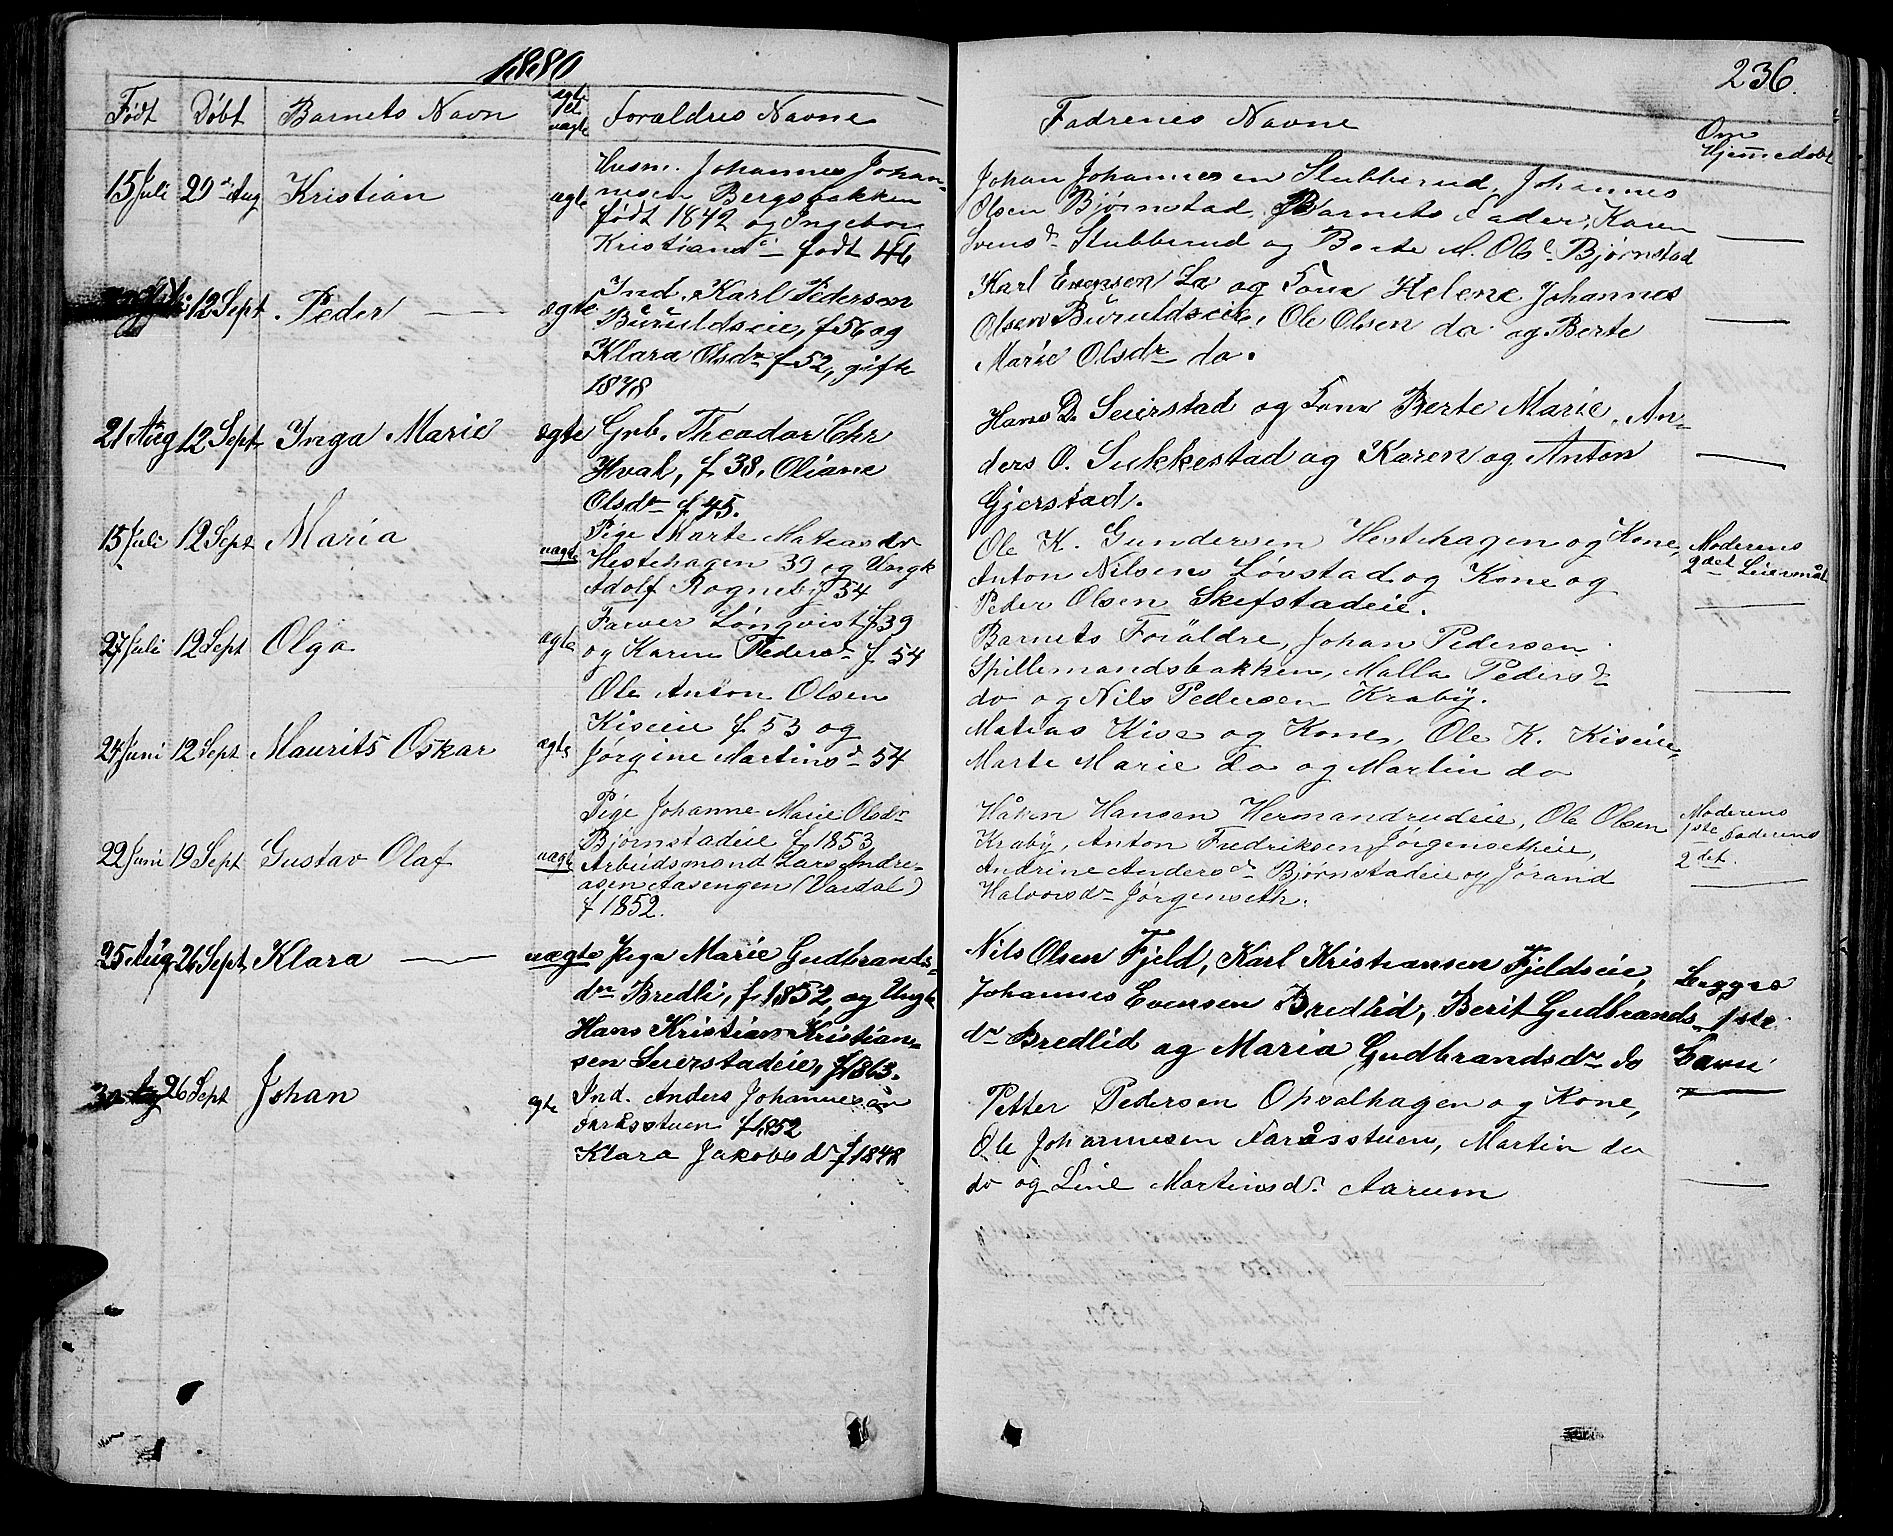 1880
236.
Født Døbt Barnets Navn ægte el. uægte Forældres Navne
Fadrenes Navne Om Hjemmedåb
15 Juli 29 Aug Kristian ægte
Husm. Johannes Johan-
nesen Bergsbakken
født 1842 og Ingebor
Kristiansd. født 46
Johan Johannesen Stubberud, Johannes
Olsen Bjørnstad, Barnets Fader, Karen
Svensd. Stubberud og Berte M. Olsd. Bjørnstad
12 Sept. Peder ægte
Ind. Karl Pedersen
Búrúldseie, f 56 og
Klara Olsdr f 52, gifte
1878
Karl Evensen La og Kone Helene, Johannes
Olsen Búrúldseie, Ole Olsen do og Berte
Marie Olsdr do.
21 Aug 12 Sept. Inga Marie ægte
Grb. Theodor Chr
Hval, f 38. Oliane
Olsdr f 45.
Hans D. Seierstad og Kone Berte Marie, An-
ders O. Sukkestad og Karen og Anton
Gjerstad.
15 Juli 12 Sept Maria uægte
Pige Marte Matiasdr
Hestehagen 39 og Ungk
Adolf Rogneby 54
Ole K. Gundersen Hestehagen og Kone,
Anton Nilsen Løvstad og Kone og
Peder Olsen Skefstadeie.
Moderens
2det Leiermål
27 Juli 12 Sept Olga ægte
Farver Lønqvist f 39
og Karen Pedersd. f 54
Barnets Forældre, Johan Pedersen
Spillemandsbakken, Malla Pedersd.
do og Nils Pedersen Kraby.
24 Juni 12 Sept Maurits Oskar ægte
Ole Anton Olsen
Kiseie f 53 og
Jørgine Martinsd. 54
Matias Kise og Kone, Ole K. Kiseie,
Marte Marie do og Martin do
22 Juni 19 Sept Gustav Olaf uægte
Pige Johanne Marie Olsdr
Bjørnstadeie f 1853
Arbeidsmand Lars Andre-
asen Aasengen (Vardal)
f 1852.
Håken Hansen Hermandrudeie, Ole Olsen
Kraby, Anton Fredriksen Jørgensetheie,
Andrine Andersd. Bjørnstadeie og Jørand
Halvorsdr Jørgenseth.
Moderens
1ste faderens
2det.
25 Aug 26 Sept. Klara uægte
Pige Marie Gudbrands-
dr Bredli, f. 1852, og Ungk
Hans Kristian Kristian-
sen Seierstadeie, f 1863.
Nils Olsen Fjeld, Karl Kristiansen Fjeldseie,
Johannes Evensen Bredlid, Berit Gudbrands-
dr Bredlid og Maria Gudbrandsdr do
Begges
1ste
30 Aug 26 Sept Johan ægte
Ind. Anders Johannesen
Faråsstuen f 1852
Klara Jakobsdr f 1848
Petter Pedersen Opsalhagen og Kone,
Ole Johannesen Faråsstuen, Martin do
do og Line Martinsdr. Aarum